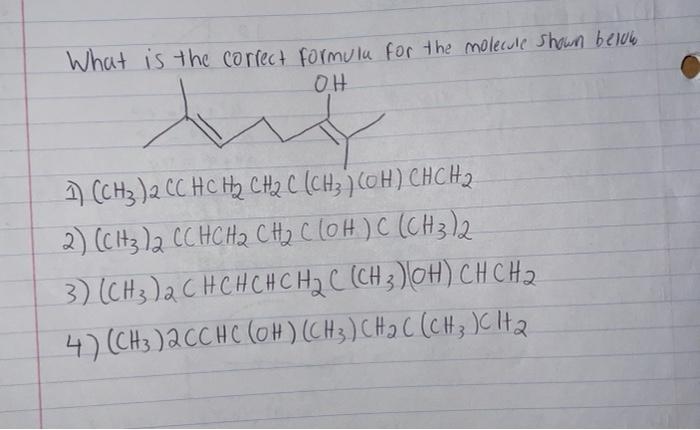 What is the correct formula for the molecule shown below
OH
1) (CH3)2CCHCH2CH2C(CH3)(OH)CHCH2
2) (CH3)2CCHCH2CH2C(OH)C(CH3)2
3) (CH3)2CHCHCHCH2C(CH3)(OH)CHCH2
4) (CH3)2CCHC(OH)(CH3)CH2C(CH3)CH2